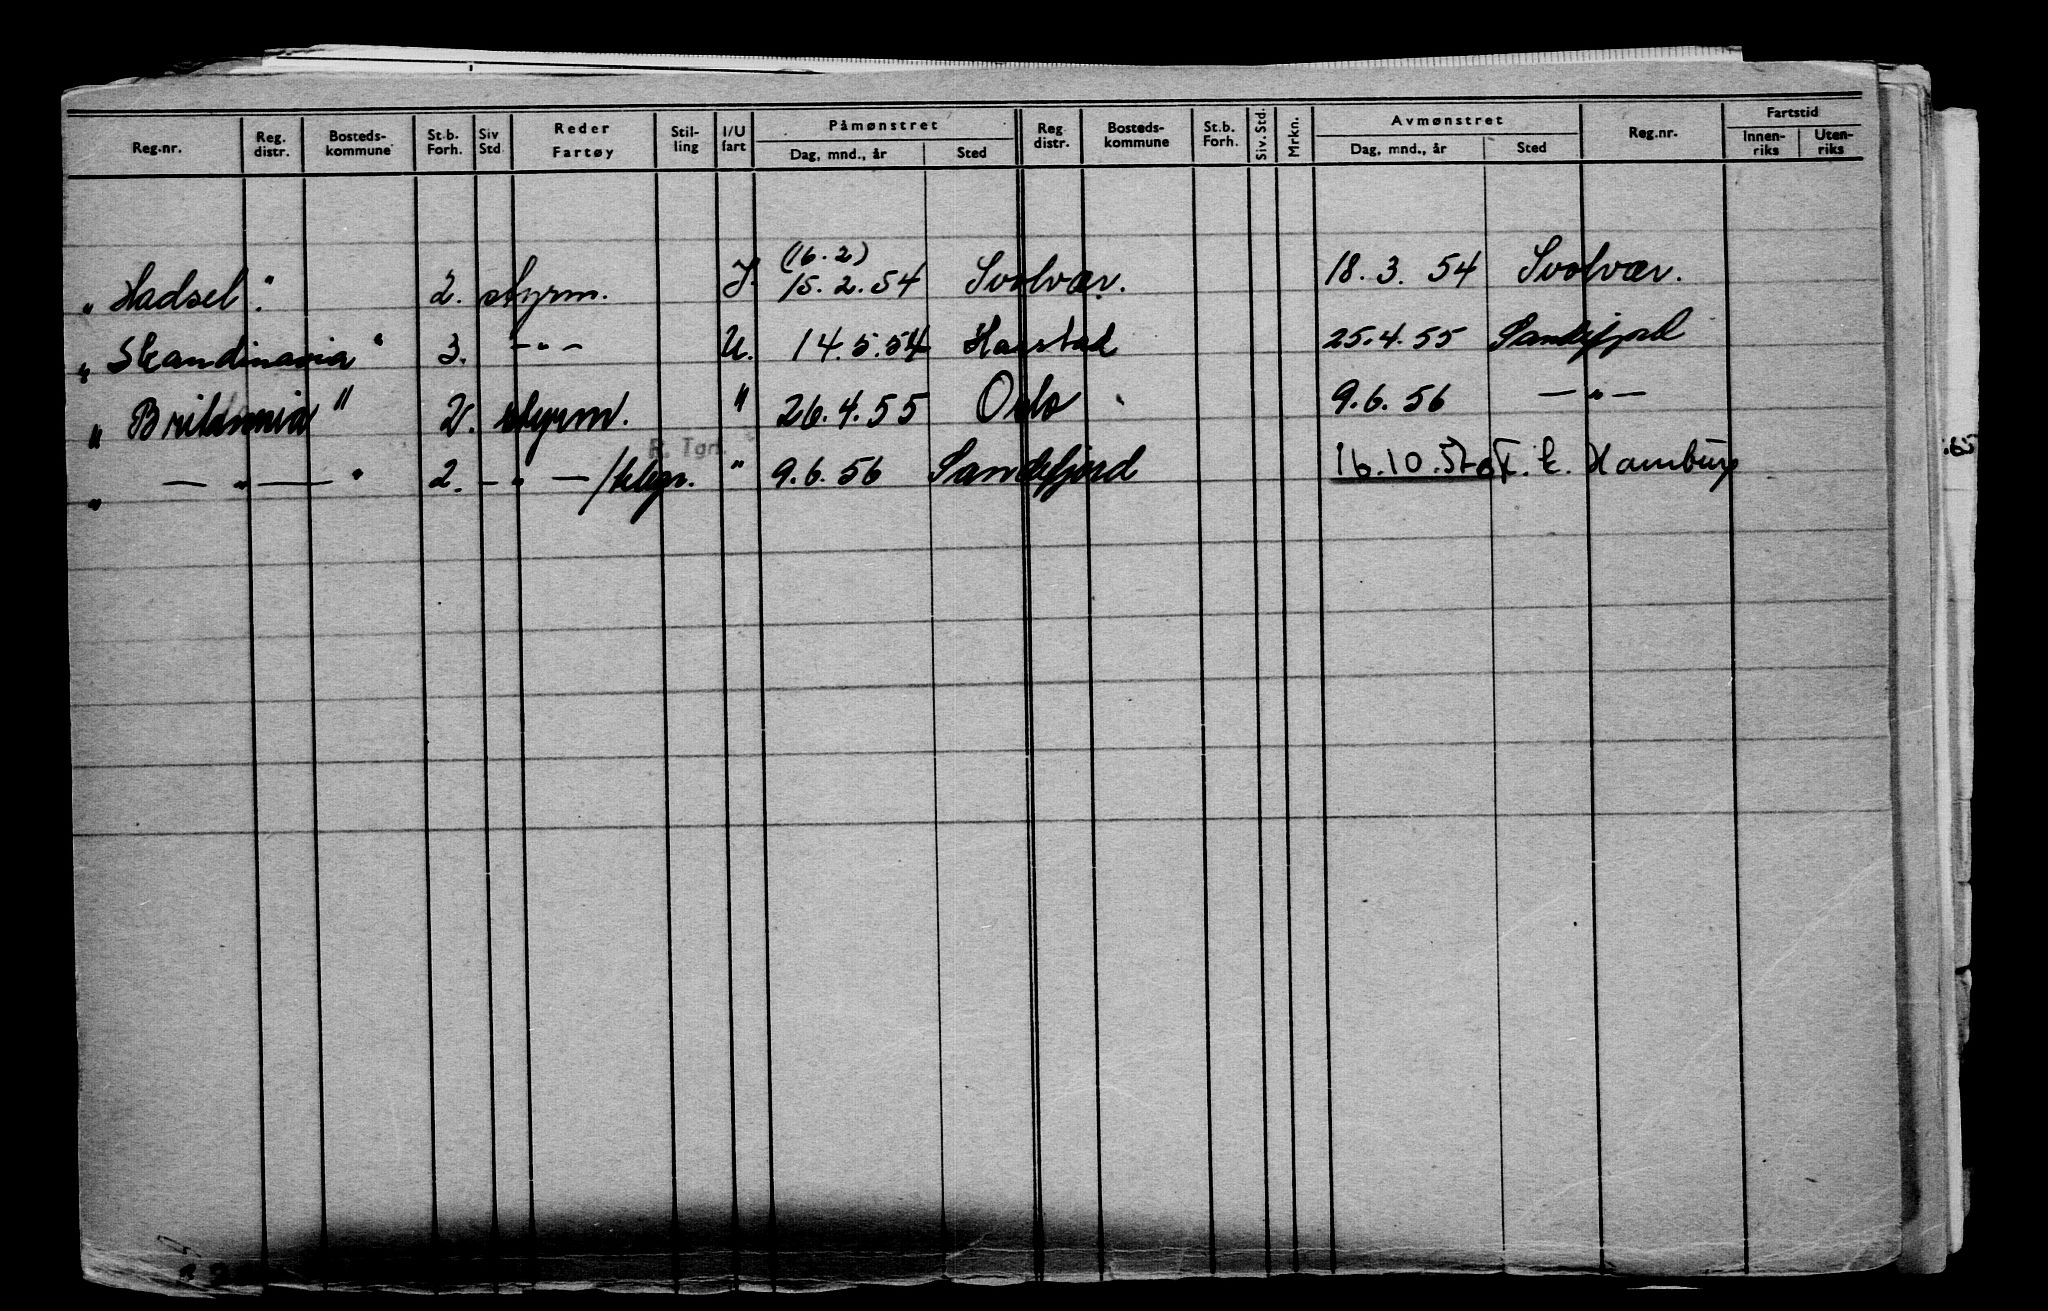 Reg.nr. Reg. distr. Bosteds-kommune St.b. Forh. Siv Std Reder Fartøy Stil-ling I/U fart Påmønstret Dag, mnd., år Sted Reg distr. Bosteds-kommune St.b. Forh. Siv. Std. Mrkn. Avmønstret Dag, mnd., år Sted Reg.nr. Fartstid Innen-riks Uten-riks
(16.2)
" Hadsel " 2. styrm. I. 15.2.54 Svolvær. 18.3.54 Svolvær.
" Skandinavia " 3. —"— U. 14.5.54 Harstad 25.4.55 Sandefjord
" Britannia " 2. styrm. " 26.4.55 Oslo 9.6.56 —"—
R. Tgr.
" —"— " 2. —"—/telegr. " 9.6.56 Sandefjord 16.10.56 F.k. Hamburg
.65